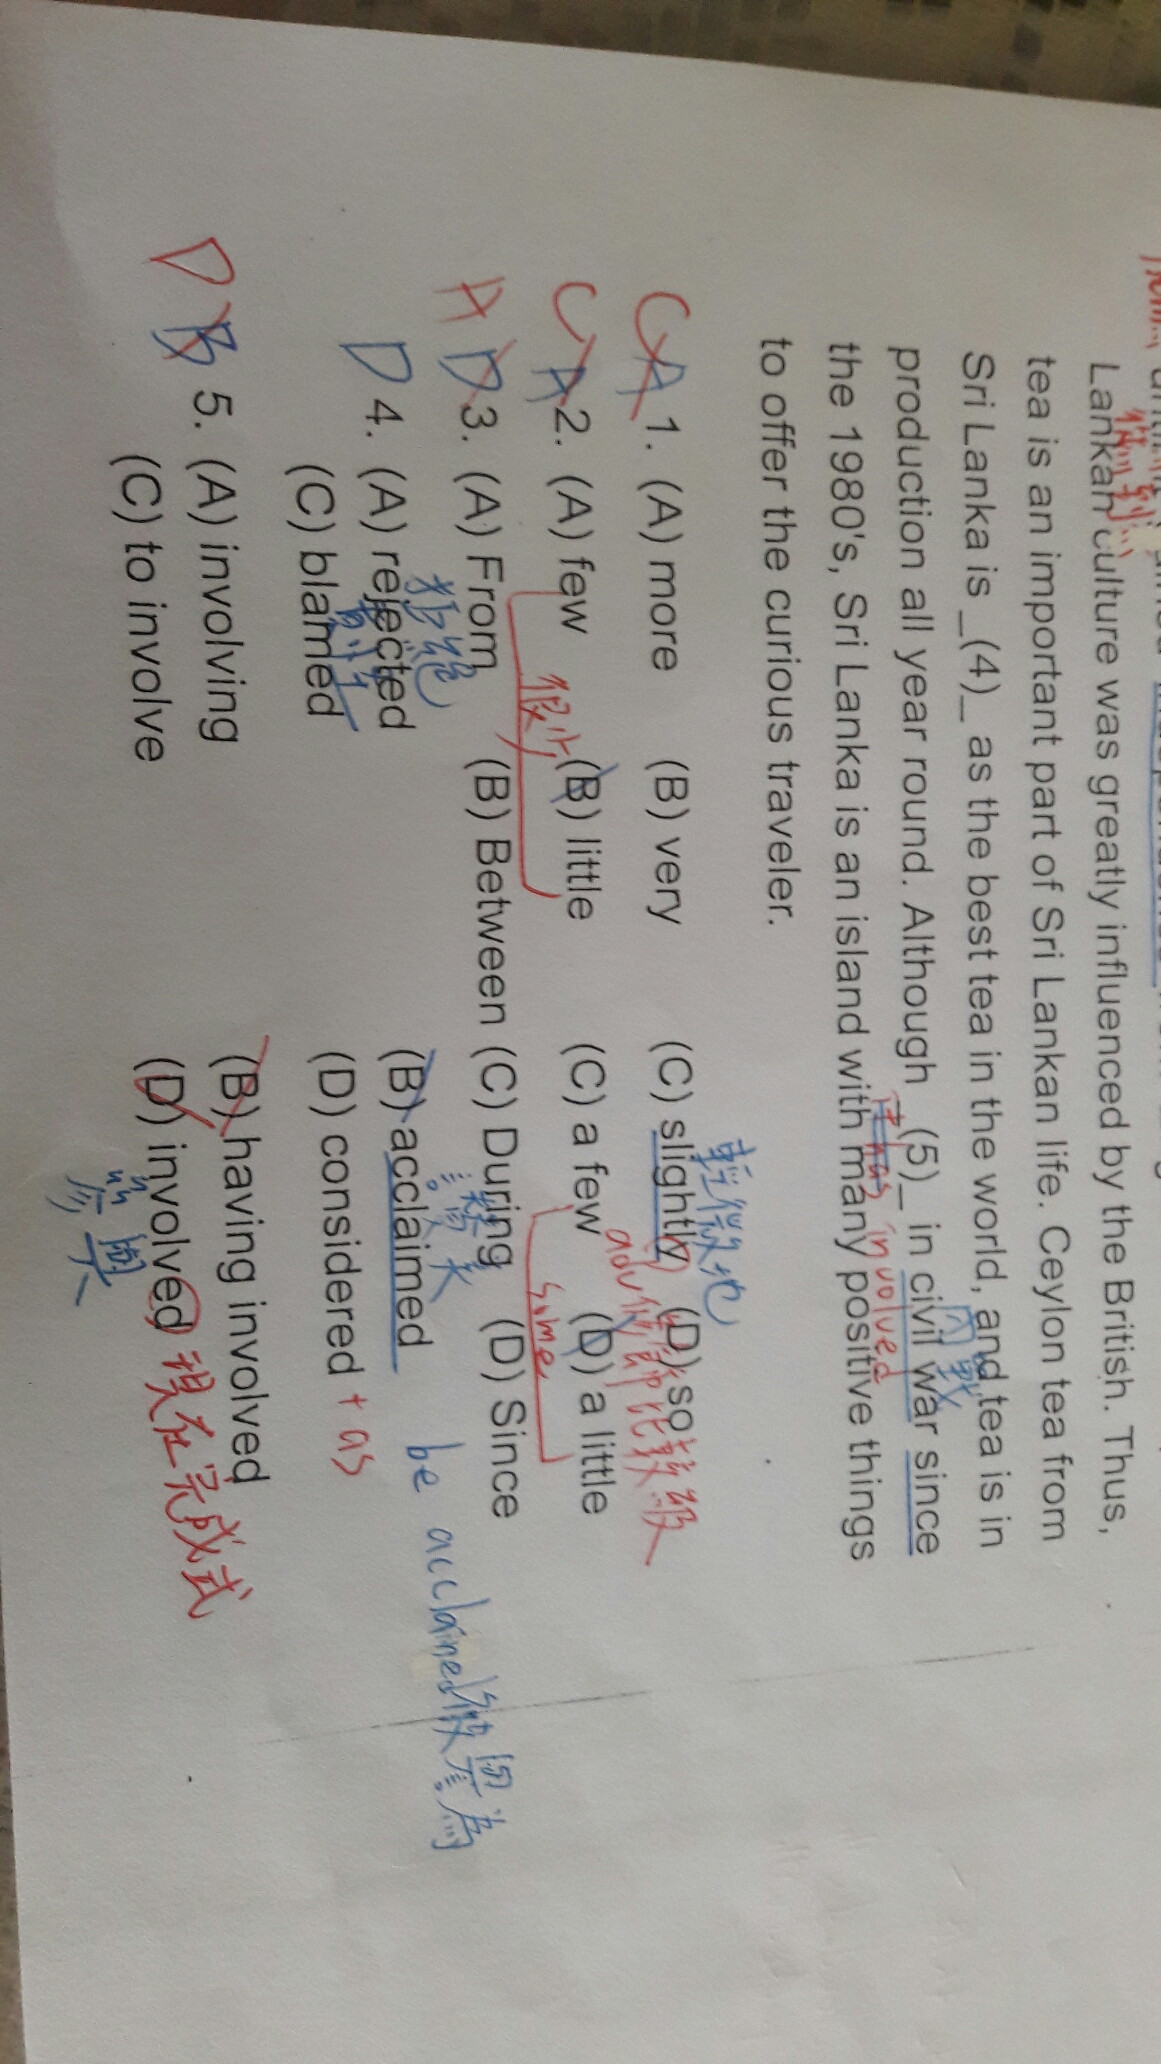 Lankan culture was greatly influenced by the British. Thus,
tea is an important part of Sri Lankan life. Ceylon tea from
Sri Lanka is _(4)_ as the best tea in the world, and tea is in
內戰
production all year round. Although _(5)_ in civil war since
it has involved
the 1980's, Sri Lanka is an island with many positive things
to offer the curious traveler.
輕微地
C A 1. (A) more (B) very (C) slightly (D) so
adv 修飾比較級
C A 2. (A) few (B) little (C) a few (D) a little
很少 some
A D 3. (A) From (B) Between (C) During (D) Since
拒絕
D 4. (A) rejected (B) acclaimed be acclaimed 被譽為
(C) blamed (D) considered + as
D B 5. (A) involving (B) having involved
(C) to involve (D) involved 現在完成式
參與